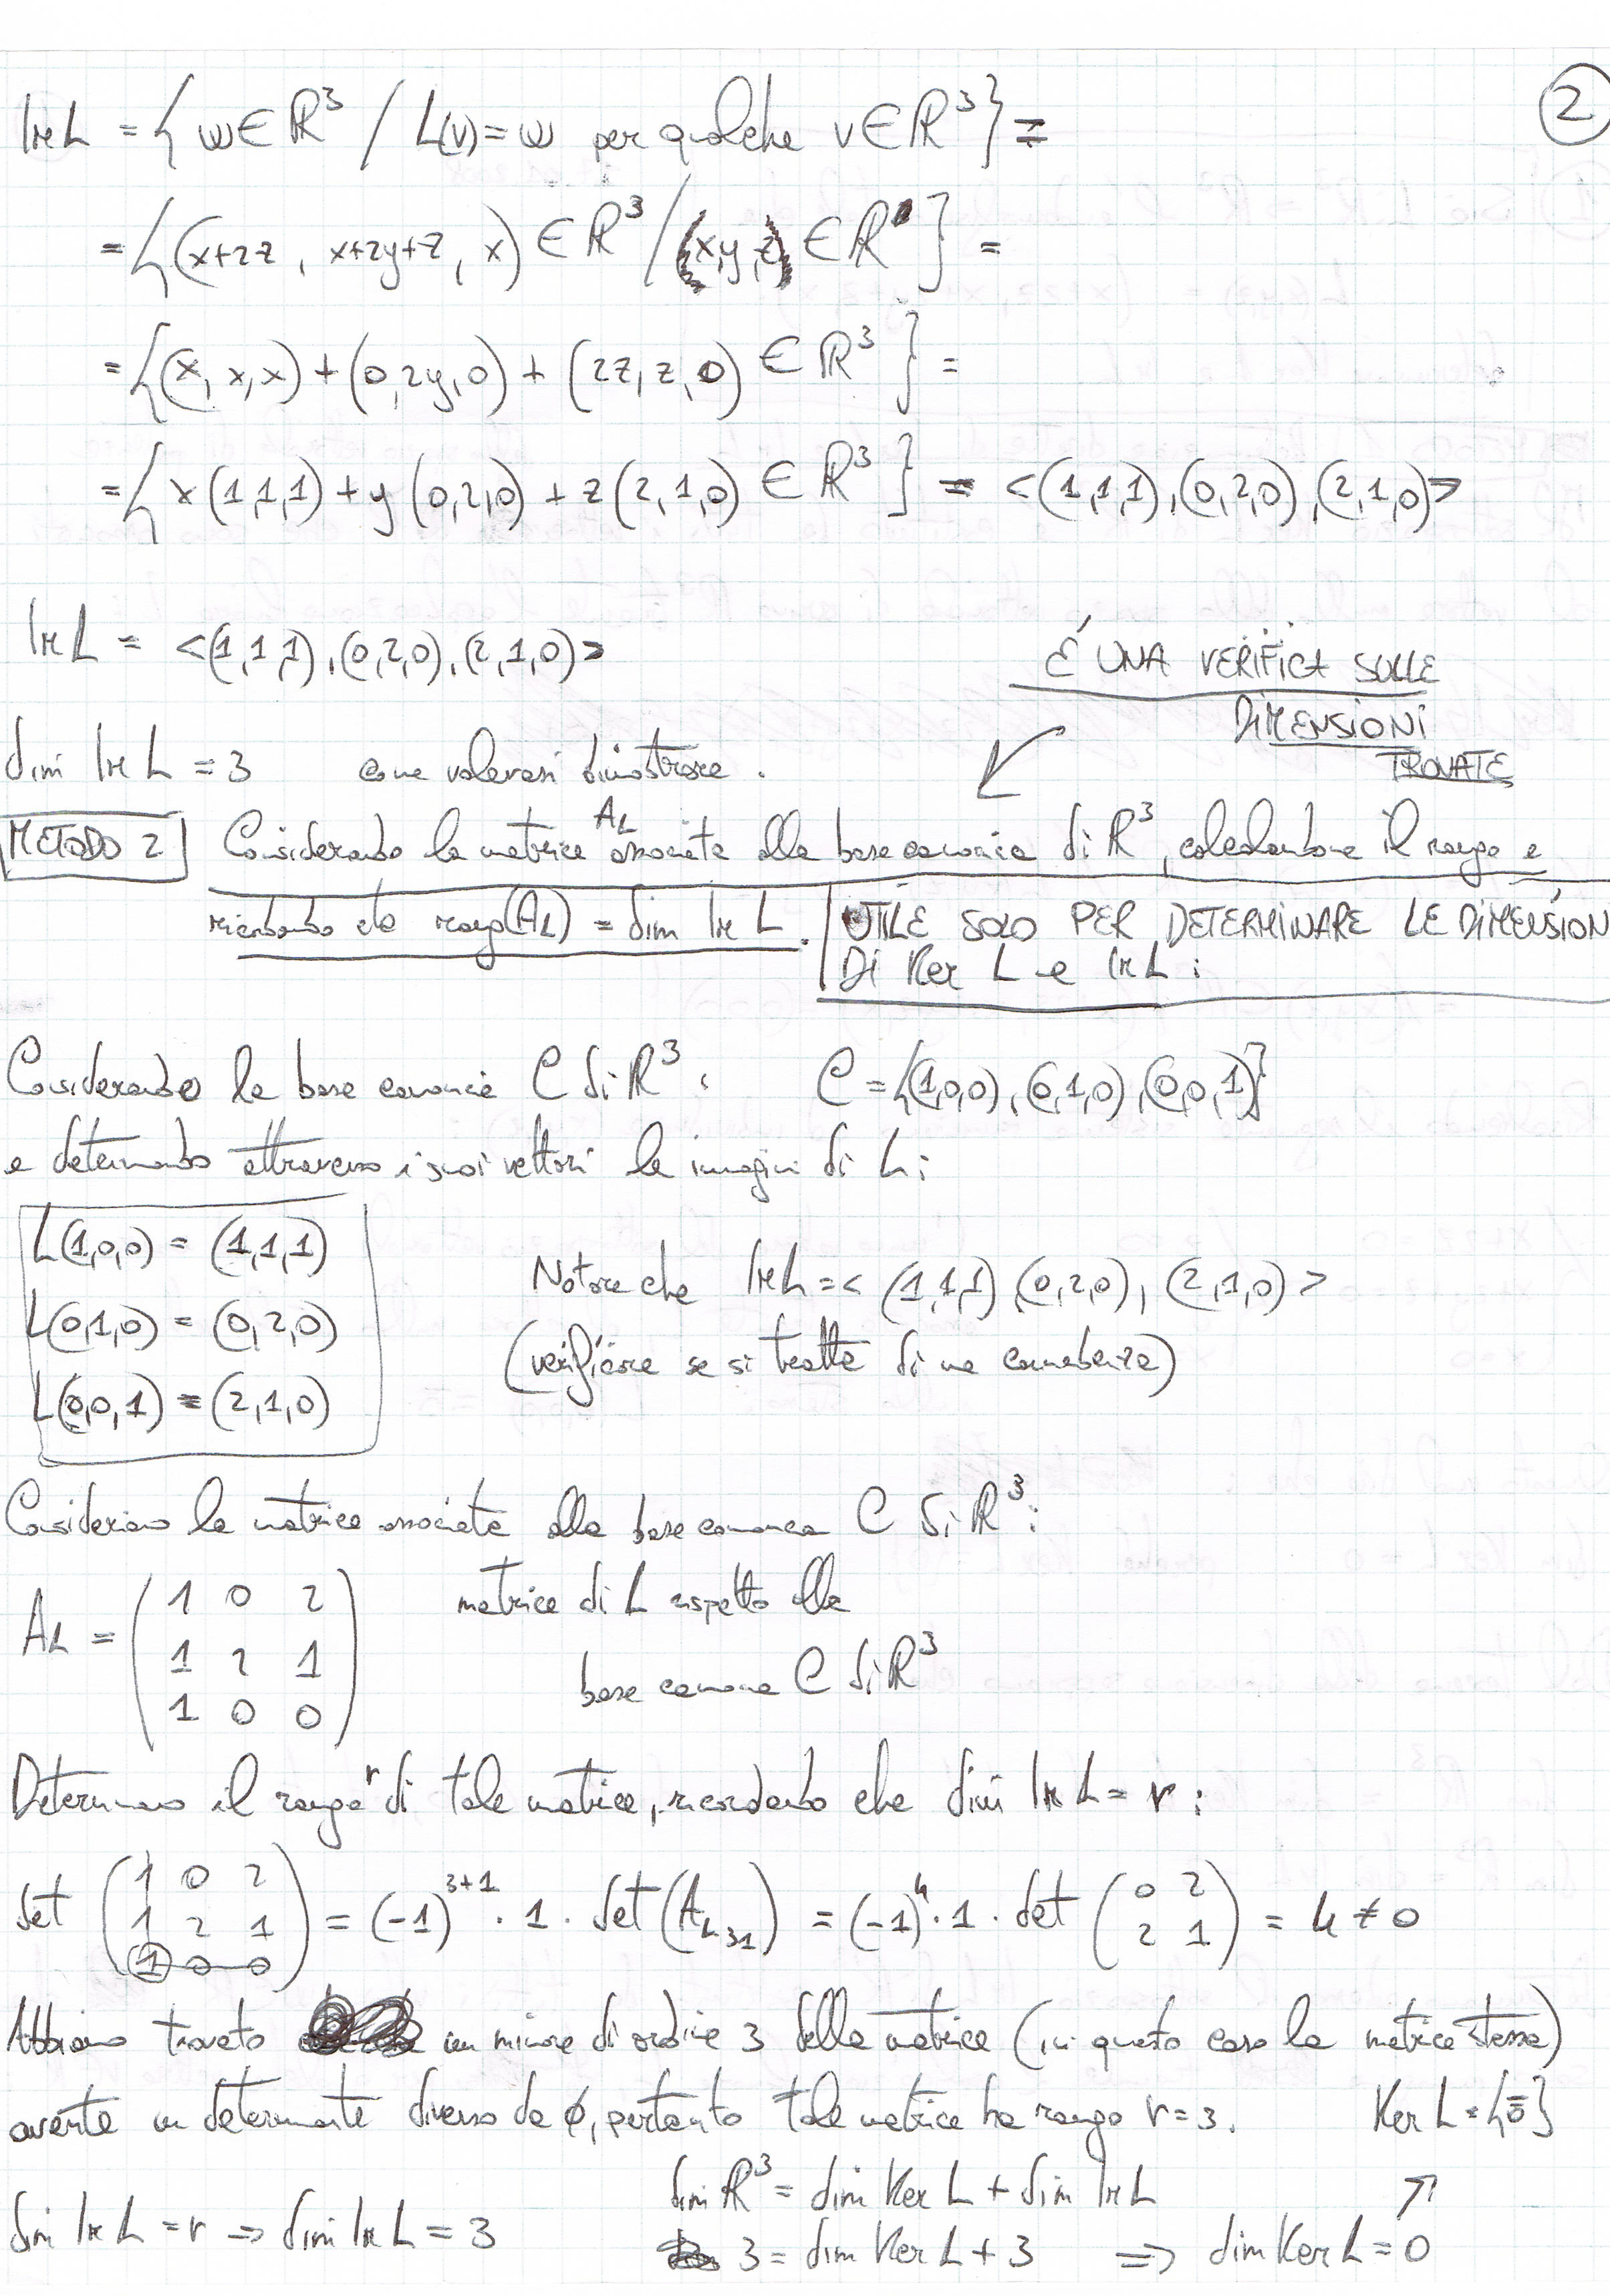 2
Im L = { w ∈ ℝ³ / L(v) = w per qualche v ∈ ℝ³ } =
= { (x+2z, x+2y+z, x) ∈ ℝ³ / (x,y,z) ∈ ℝ } =
= { (x,x,x) + (0,2y,0) + (2z,z,0) ∈ ℝ³ } =
= { x(1,1,1) + y(0,2,0) + z(2,1,0) ∈ ℝ³ } = <(1,1,1),(0,2,0),(2,1,0)>
Im L = <(1,1,1),(0,2,0),(2,1,0)>
É UNA VERIFICA SULLE
DIMENSIONI
TROVATE
dim Im L = 3 come volevasi dimostrare.
METODO 2 Considerando la matrice A_L associata alla base canonica di ℝ³, calcolandone il rango e
ricordando che rang(A_L) = dim Im L. UTILE SOLO PER DETERMINARE LE DIMENSION
DI Ker L e Im L:
Considerando la base canonica C di ℝ³: C = {(1,0,0),(0,1,0),(0,0,1)}
e determinando attraverso i suoi vettori le immagini di L:
L(1,0,0) = (1,1,1)
L(0,1,0) = (0,2,0)
L(0,0,1) = (2,1,0)
Notare che Im L = < (1,1,1),(0,2,0),(2,1,0) >
(verificare se si tratta di una coincidenza)
Consideriamo la matrice associata alla base canonica C di ℝ³:
A_L = ( 1 0 2
1 2 1
1 0 0 )
matrice di L rispetto alla
base canonica C di ℝ³
Determiniamo il rango r di tale matrice, ricordando che dim Im L = r:
det ( 1 0 2
1 2 1
1 0 0 ) = (-1)³⁺¹ · 1 · det(A_L31) = (-1)⁴ · 1 · det ( 0 2
2 1 ) = 4 ≠ 0
Abbiamo trovato un minore di ordine 3 della matrice (in questo caso la matrice stessa)
avente un determinante diverso da 0, pertanto tale matrice ha rango r = 3. Ker L = {0̄}
dim Im L = r ⇒ dim Im L = 3
dim ℝ³ = dim Ker L + dim Im L
3 = dim Ker L + 3 ⇒ dim Ker L = 0